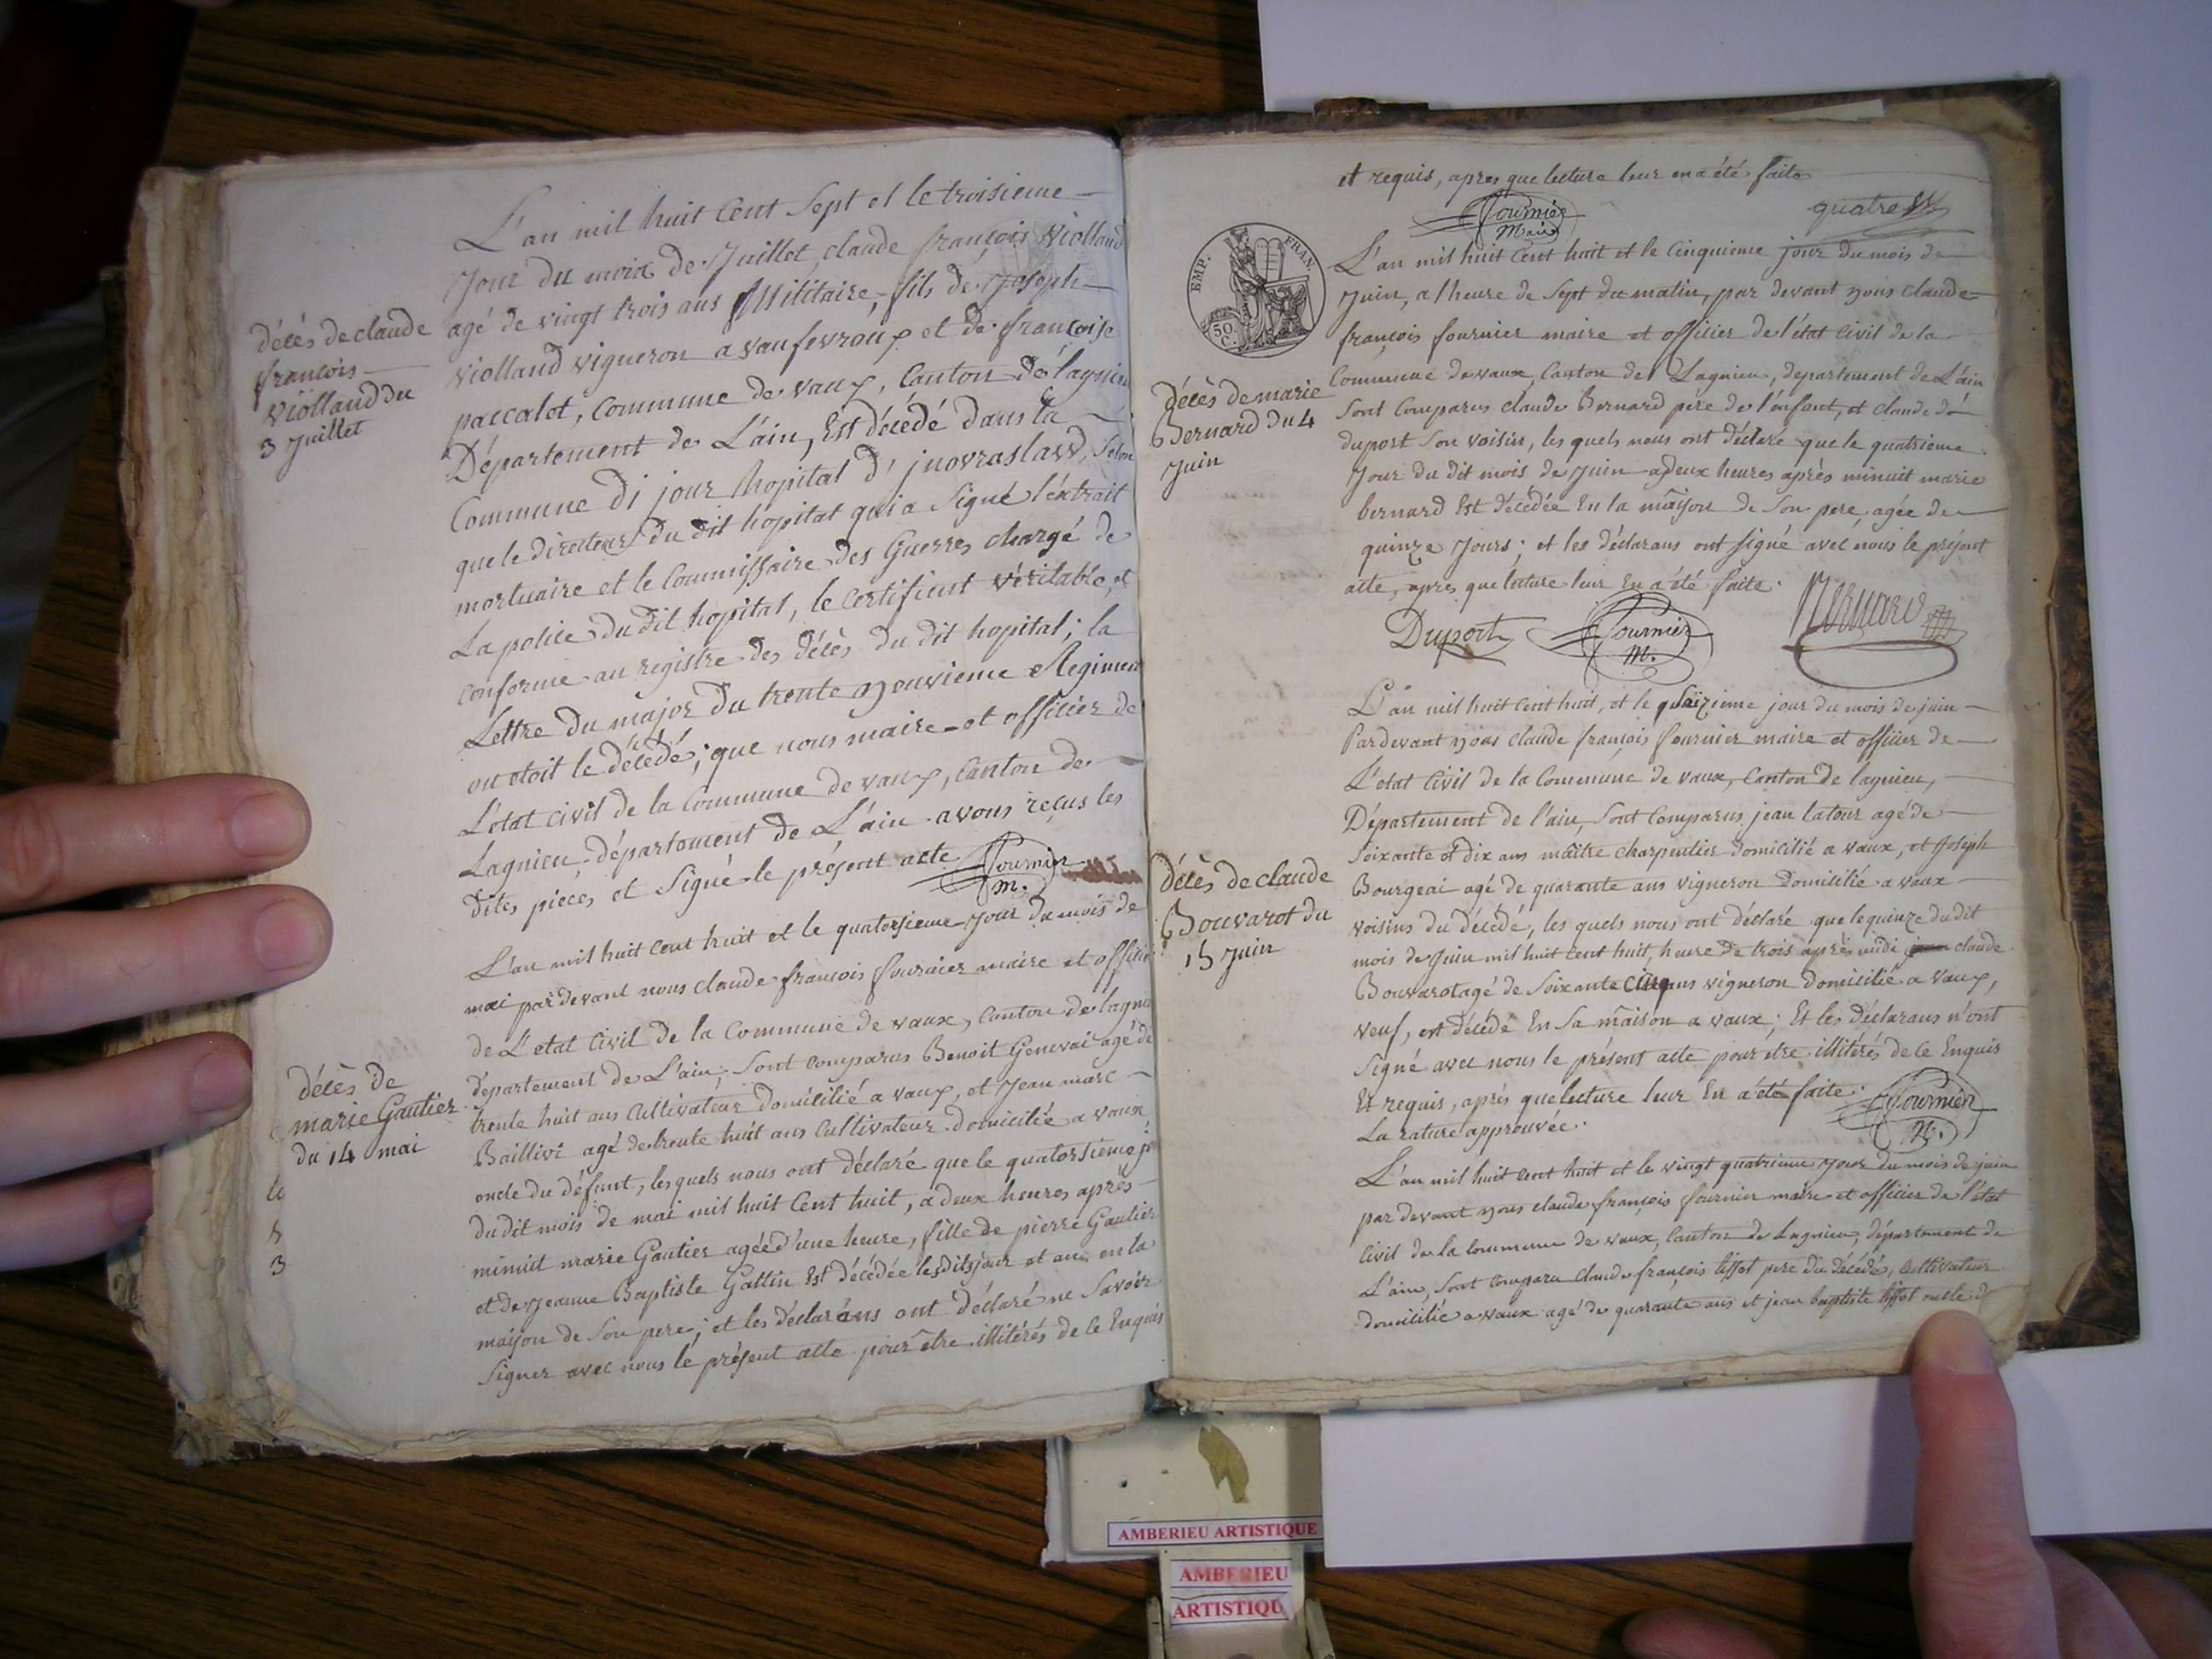 L'an mil huit Cent Sept et le troisieme
Jour du mois de Juillet claude françois Violland
agé de vingt trois ans Militaire, fils de Joseph
Violland vigneron a vaufevroux et de françoise
paccalet, commune de vaux, Canton de lagnieu
Département de L'ain, Est décédé dans la
Commune di jour hopital d'jnovraslaw, Selon
que le directeur du dit hopital qui a Signé l'éxtrait
mortuaire et le Commissaire des Guerres chargé de
La police du dit hopital, le Certifient véritable, et
conforme au registre des décès du dit hopital; la
Lettre du major du trente neuvieme Regiment
ou etoit le décédé; que nous maire et officier de
L'etat civil de la Commune de vaux, Canton de
Lagnieu, département de L'ain avons reçus les
dites pieces et Signé le présent acte Fournier
m.
décès de claude
françois
Violland du
3 Juillet
L'an mil huit cent huit et le quatorsieme Jour du mois de
mai pardevant nous claude françois fournier maire et officier
de L'etat Civil de la Commune de vaux, Canton de lagnieu
département de L'ain, Sont comparus Benoit Genevai agé de
trente huit ans Cultivateur domicilié a vaux, et Jean marc
Baillivi agé de trente huit ans Cultivateur domicilié a vaux
oncle du défunt, lesquels nous ont déclaré que le quatorsieme
du dit mois de mai mil huit Cent huit, a deux heures après
minuit marie Gautier agée d'une heure, fille de pierre Gautier
et de Jeanne Baptiste Gallin Est décédée lesdits jour et an en la
maison de Son pere; et les déclarans ont déclaré ne Savoir
Signer avec nous le présent acte pour être illitérés de ce Enquis
décès de
marie Gautier
du 14 mai
le
3
et requis, apres que lecture leur en a été faite
Fournier
Maire
quatre
EMP. FRAN.
50
C.
L'an mil huit Cent huit et le Cinquieme jour du mois de
Juin, a l'heure de Sept du matin, par devant nous claude
françois fournier maire et officier de l'état Civil de la
Commune de vaux, Canton de Lagnieu, département de L'ain
Sont Comparus claude Bernard pere de l'enfant, et claude
duport Son voisin, les quels nous ont déclaré que le quatrieme
Jour du dit mois de Juin a deux heures après minuit marie
bernard Est décédée En la maison de Son pere, agée de
quinze Jours; et les déclarans ont signé avec nous le présent
acte, apres que lecture leur En a été faite.
Duport Fournier Bernard
M.
Décès de marie
Bernard du 4
Juin
L'an mil huit Cent huit, et le seizieme jour du mois de juin
Pardevant nous claude françois fournier maire et officier de
L'etat Civil de la Commune de vaux, Canton de lagnieu,
Département de l'ain, Sont Comparus jean latour agé de
Soixante et dix ans maître charpentier domicilié a vaux, et Joseph
Bourgeai agé de quarante ans vigneron domicilié a vaux
voisins du décédé, les quels nous ont déclaré que le quinze du dit
mois de Juin mil huit Cent huit, heure de trois après midi claude
Bouvarot agé de Soixante Cinq ans vigneron domicilié a vaux,
veuf, est décédé En Sa maison a vaux; Et les déclarans n'ont
Signé avec nous le présent acte pour etre illitérés de ce Enquis
Et requis, après que lecture leur En a été faite.
La rature approuvée. Fournier
M.
Décès de claude
Bouvarot du
15 Juin
L'an mil huit Cent huit et le vingt quatrieme jour du mois de juin
par devant nous claude françois fournier maire et officier de l'état
Civil de la Commune de vaux, Canton de Lagnieu, département de
L'ain, Sont comparu Claude françois tissot pere du décédé, Cultivateur
domicilié a vaux agé de quarante ans et jean baptiste tissot oncle
AMBERIEU ARTISTIQUE
AMBERIEU
ARTISTIQU